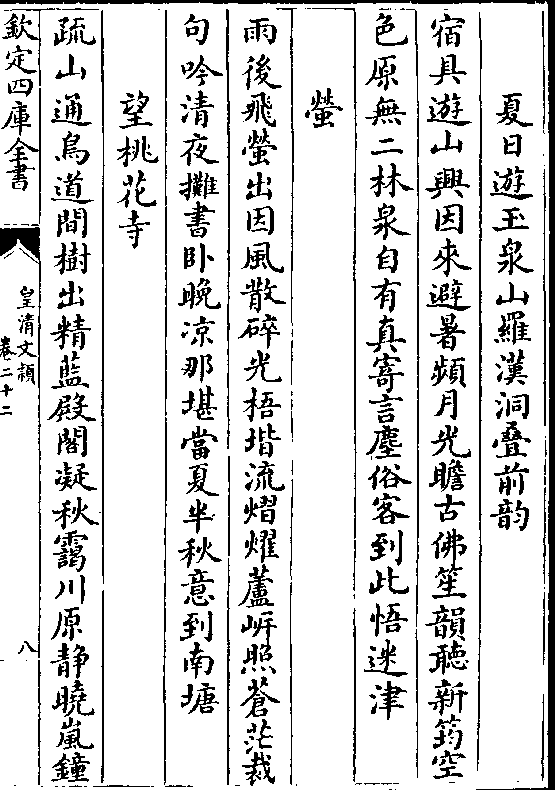 夏日遊玉泉山羅漢洞叠前韵
宿具遊山興因來避暑頻月光瞻古佛笙韻聽新筠空
色原無二林泉自有真寄言塵俗客到此悟迷津
螢
雨後飛螢出因風散碎光梧堦流熠燿蘆岍照蒼茫裁
句吟清夜攤書卧晚凉那堪當夏半秋意到南塘
望桃花寺
疏山通鳥道間樹出精藍殿閣凝秋靄川原静曉嵐鐘
欽定四庫全書
皇清文穎
卷二十二
八